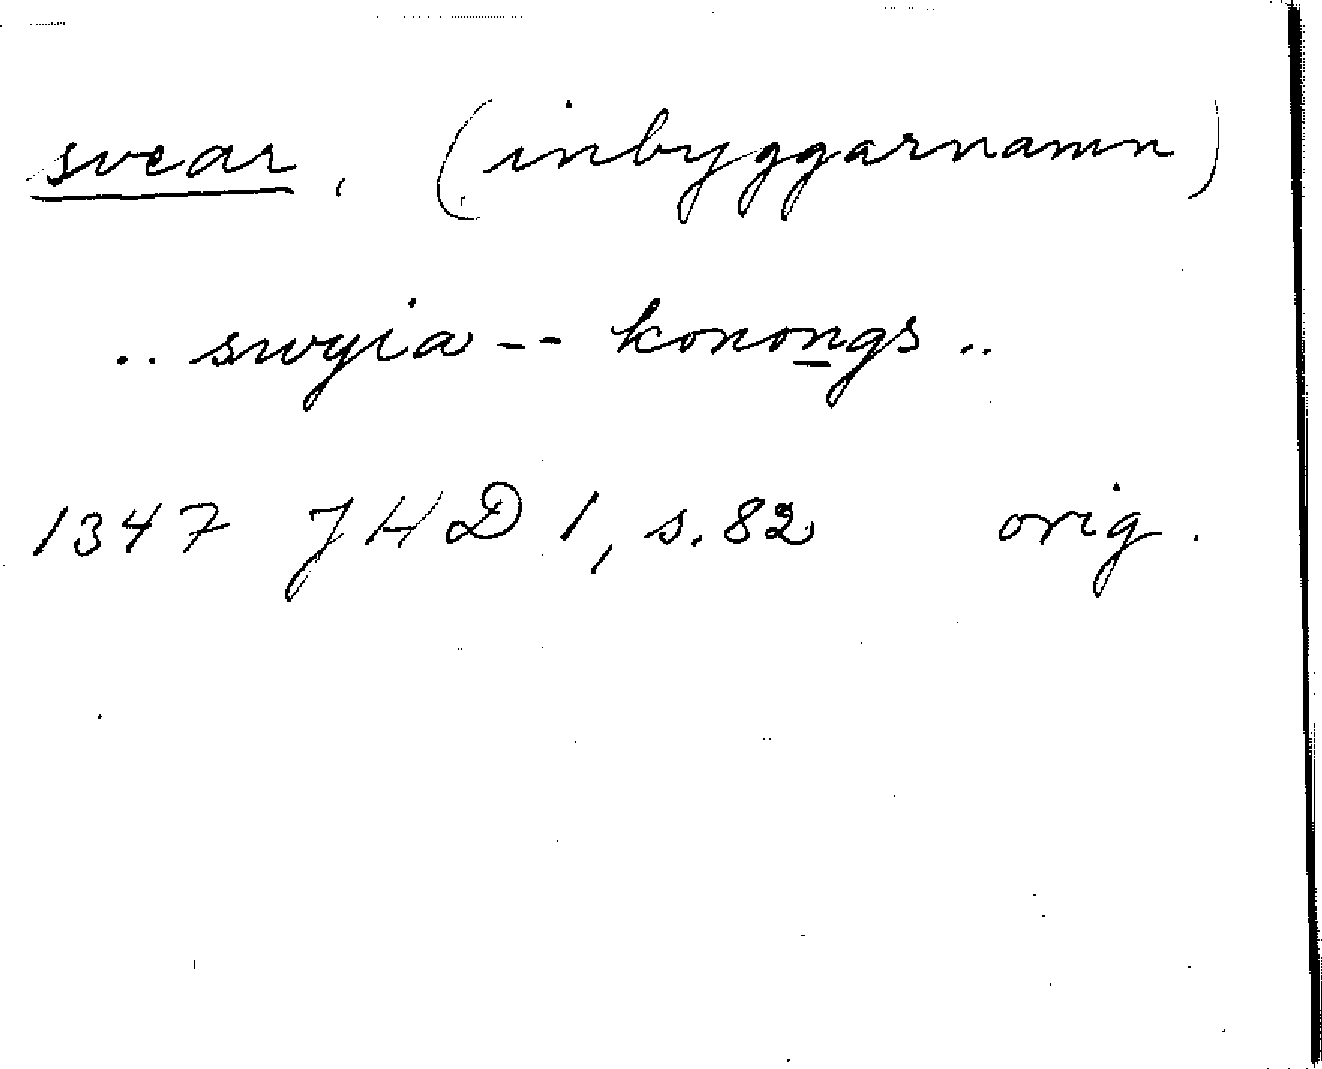 svear, (inbyggarnamn)
.. swyia -- konongs ..
1347 JHD 1, s. 82 orig.